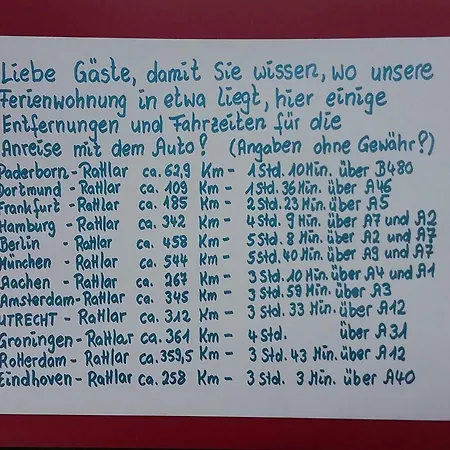 Liebe Gäste, damit Sie wissen, wo unsere
Ferienwohnung in etwa liegt, hier einige
Entfernungen und Fahrzeiten für die
Anreise mit dem Auto? (Angaben ohne Gewähr?)
Paderborn - Rattlar ca. 62,9 Km - 1 Std. 10 Min. über B480
Dortmund - Rattlar ca. 109 Km - 1 Std. 36 Min. über A46
Frankfurt - Rattlar ca. 185 Km - 2 Std. 23 Min. über A5
Hamburg - Rattlar ca. 342 Km - 4 Std. 9 Min. über A7 und A2
Berlin - Rattlar ca. 458 Km - 5 Std. 8 Min. über A2 und A7
München - Rattlar ca. 544 Km - 5 Std. 40 Min. über A9 und A7
Aachen - Rattlar ca. 267 Km - 3 Std. 10 Min. über A4 und A1
Amsterdam - Rattlar ca. 345 Km - 3 Std. 59 Min. über A3
UTRECHT - Rattlar ca. 312 Km - 3 Std. 33 Min. über A12
Groningen - Rattlar ca. 361 Km - 4 Std. über A31
Rotterdam - Rattlar ca. 359,5 Km - 3 Std. 43 Min. über A12
Eindhoven - Rattlar ca. 258 Km - 3 Std. 3 Min. über A40